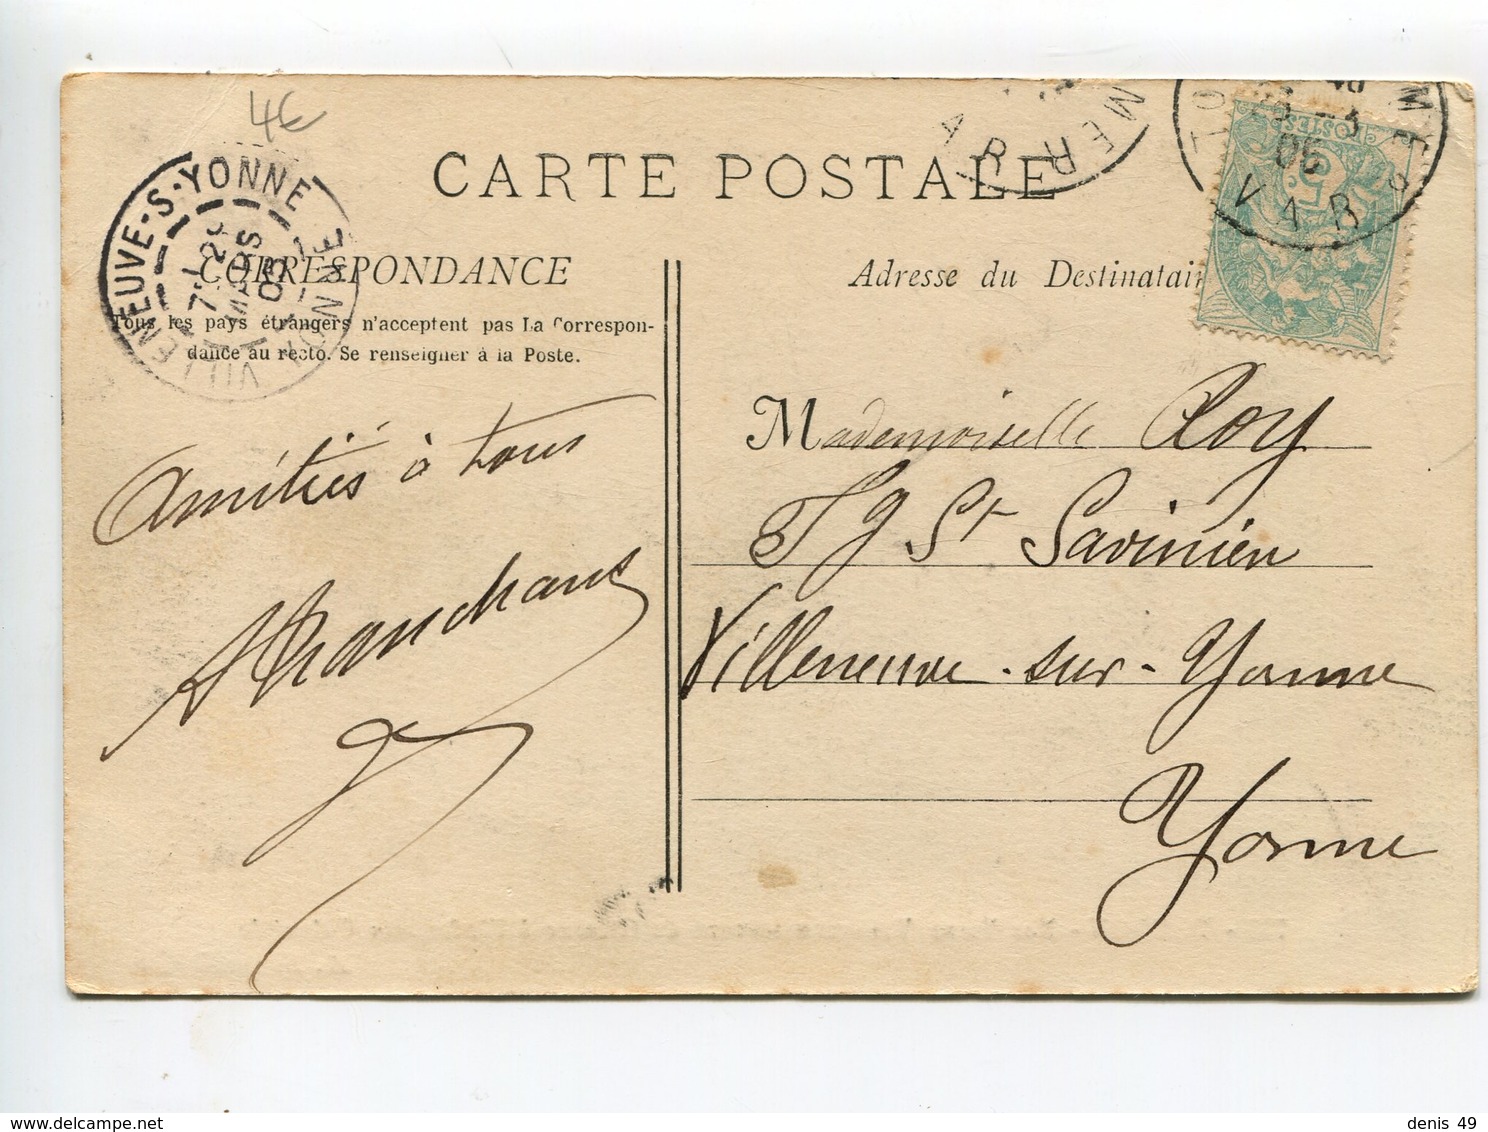 4€
CARTE POSTALE
VILLENEUVE-S-YONNE
YONNE
MARS
06
MER
VAR
MER
06
VAR
POSTES
5
CORRESPONDANCE
Tous les pays étrangers n'acceptent pas La Correspon-
dance au recto. Se renseigner à la Poste.
Adresse du Destinatair
Amitiés à tous
Mademoiselle Roy
Fg St Savinien
Villeneuve-sur-Yonne
Yonne
denis 49